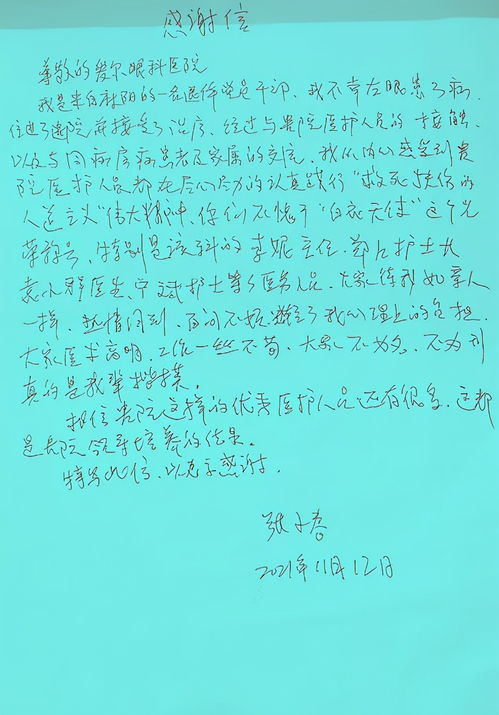 感谢信
尊敬的爱尔眼科医院
我是来自射阳的一名退休党员干部，我不幸左眼患了病，
住进了医院并接受了治疗，经过与贵院医护人员的接触，
以及与同病房病患者及家属的交流，我从内心感受到贵
院医护人员都在尽心尽力的认真践行“救死扶伤的
人道主义”伟大精神，你们不愧于“白衣天使”这个光
荣称号，特别是该科的李妮主任，郑 护士长
袁小 医生，宁斌护士等等医务人员，大家待我如亲人
一样，热情周到，百问不烦，减轻了我心理上的负担，
大家医术高明，工作一丝不苟，大家不为名，不为利
真的是我辈楷模。
相信贵院这样的优秀医护人员还有很多，这都
是贵院领导培养的结果。
特写此信，以表示感谢。
张
2021年11月12日